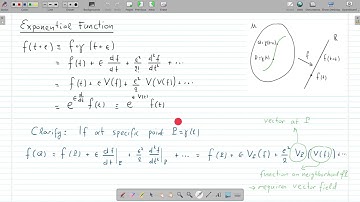 Exponential Function
f(t+ε) = f∘γ (t+ε)
= f(t) + ε df/dt + ε²/2! d²f/dt² + ...
= f(t) + ε V(f) + ε²/2 V(V(f)) + ...
= e^{ε d/dt} f(t) ≡ e^{εV} f(t)
M
R
f
f(t+ε)
f(t)
Clarify: If at specific point P = γ(t)
vector at P
f(Q) = f(P) + ε df/dt|_P + ε²/2 d²f/dt²|_P + ... = f(P) + ε V_P(f) + ε²/2 V_P(V(f)) + ...
function on neighborhood of P
→ requires vector field